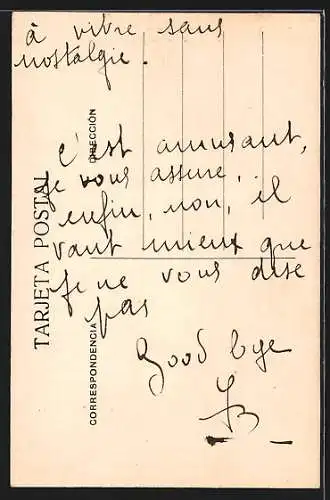 à vivre sans
nostalgie.
c'est amusant,
je vous assure,
enfin, non, il
vaut mieux que
je ne vous dise
pas
Good bye
JB
TARJETA POSTAL
CORRESPONDENCIA
DIRECCIÓN